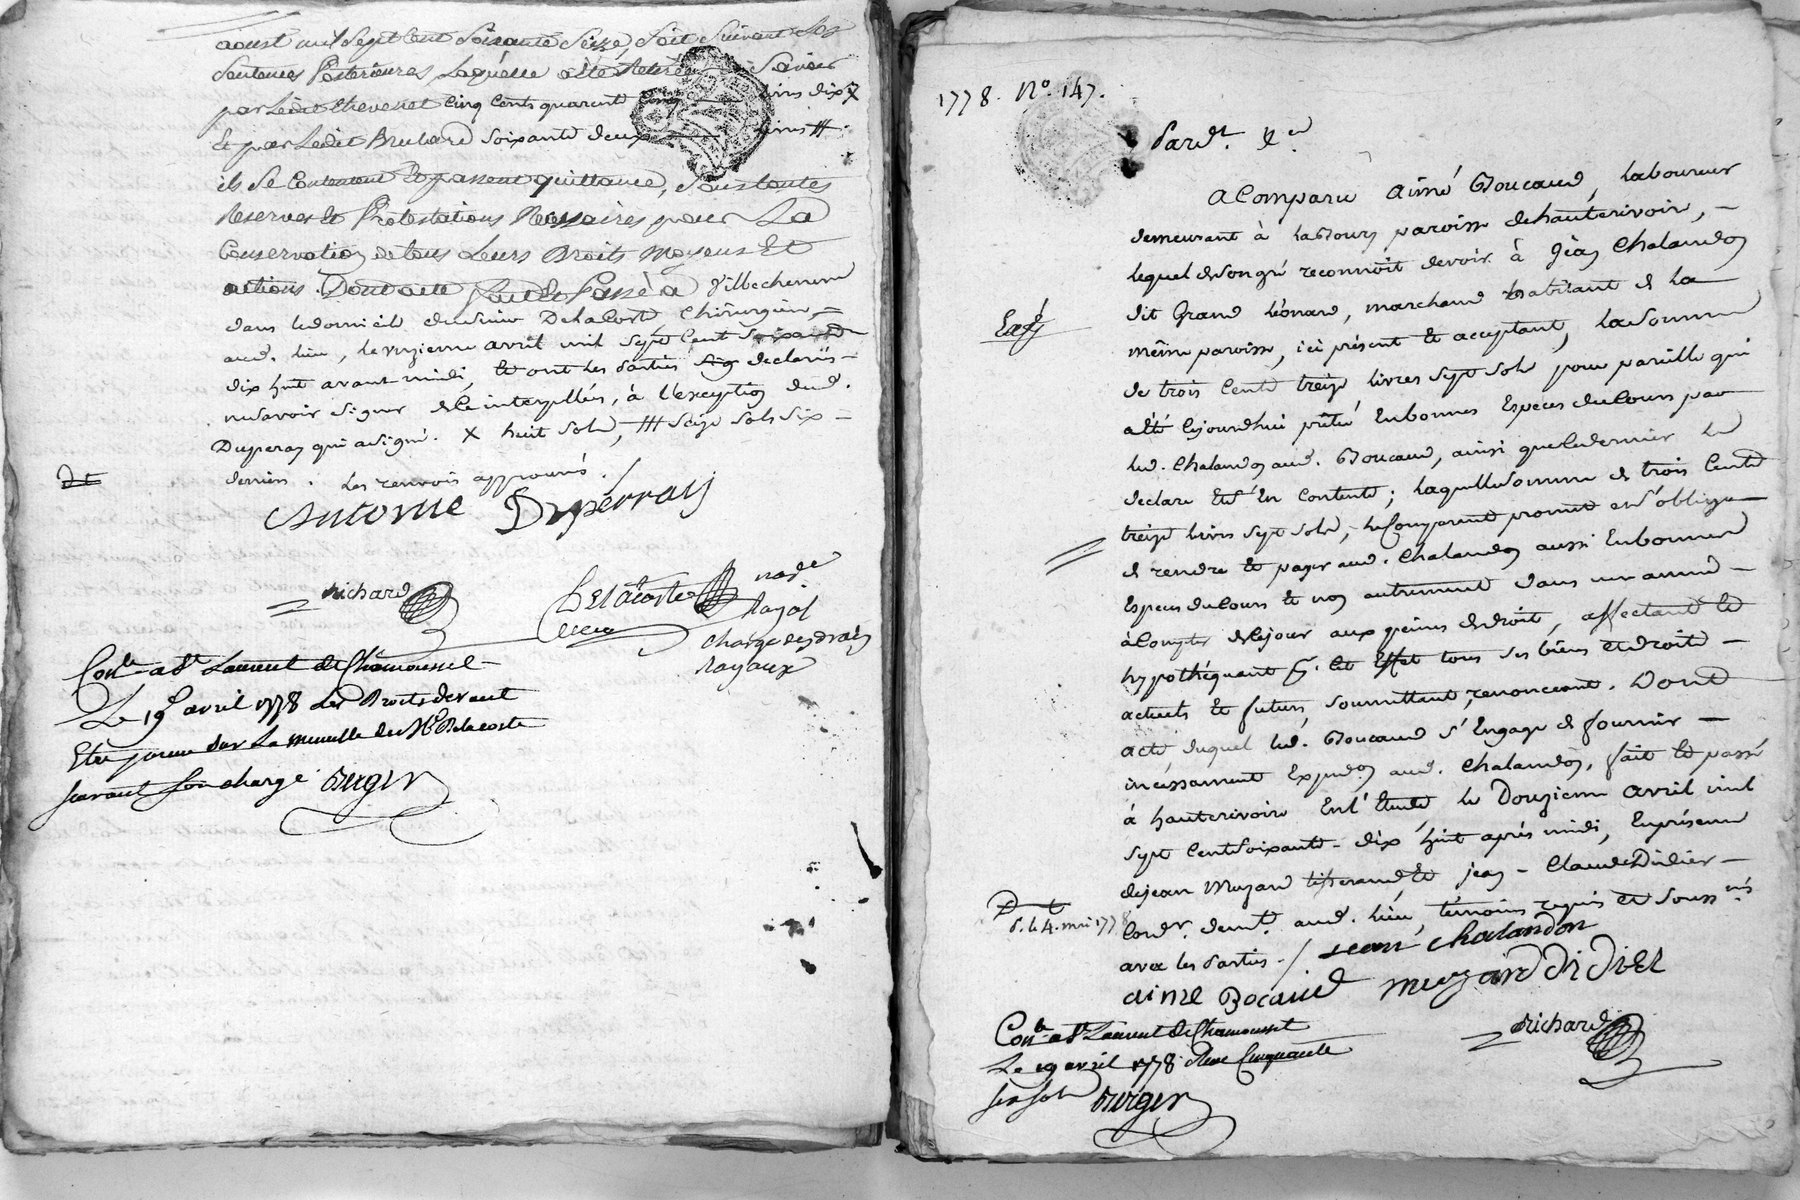 aoust mil Sept Cent Soixante Seize, Soit Suivant les
Sentences Posterieures, Laquelle a été Retirée Savoir
par Ledit Chevenet Cinq Cents quarente livres dix X
Et par Ledit Brulard Soixante deux livres ///.
ils Se Contentent Et passent quittance, Sous toutes
Reserves Et Protestations Necessaires pour La
Conservation de tous Leurs Droits moyens Et
actions. Dont acte fait Et Passé à Villecheneve
dans le domicile du Sieur Delacoste Chirurgien,
aud. lieu, le onzieme avril mil Sept Cent Soixante
dix huit avant midi, Et ont les Parties Sig declarés
ne Savoir Signer de ce interpellés, à l'exception dud.
Duperay qui a Signé. X huit Sols, /// Seize Sols Six
deniers. Les renvois approuvés.
Antoine Duperray
Richard
Delacoste
no.re
Royal
Chargé des droits
Royaux
Con.lé a St Laurent de Chamousset
Le 19 avril 1778 Les Droits devant
Etre perçus Sur La minutte de Me Delacoste
Suivant Son charge Berger
1778. No. 147.
Pard.t &.a
A Comparu Aimé Boucaud, Laboureur
demeurant à Laboury paroisse de hauterivoire,
Lequel de Son gré reconnoit devoir à Jean Chalandon
dit Grand Léonard, marchand habitant de La
Exp.é
même paroisse, ici présent et acceptant, La Somme
de trois Cents treize livres Sept Sols pour pareille qui
a été Cejourd'hui prêtée En bonnes Espèces du Cours par
led. Chalandon aud. Boucaud, ainsi que Ce dernier le
declare Et S'en contente; Laquelle Somme de trois Cents
treize livres Sept Sols, le Comparant promet et S'oblige
de rendre et payer aud. Chalandon aussi En bonnes
Espèces du Cours et non autrement dans une année
à Compter de Ce jour aux peines de droit, affectant Et
hypothéquant p. Cet Effet tous Ses biens et droits
actuels et futurs, Soumettant, renonceant. Dont
acte duquel led. Boucaud S'engage de fournir
incéssamment Expedon aud. Chalandon, fait et passé
à hauterivoire En l'Etude, le Douzieme avril mil
Sept Cent Soixante dix huit après midi, En présence
de Jean Muzard tisserand Et Jean Claude Didier
Cord.r dem.t aud. lieu, témoins requis Et Souss.nés
D. le 4. mai 1778
avec les Parties. / Jean Chalandon
aimé Bocaud Muzard Didier
Richard
Con.lé a St Laurent de Chamousset
Le 19 avril 1778 Reçu Cinquante
Six Sols Berger